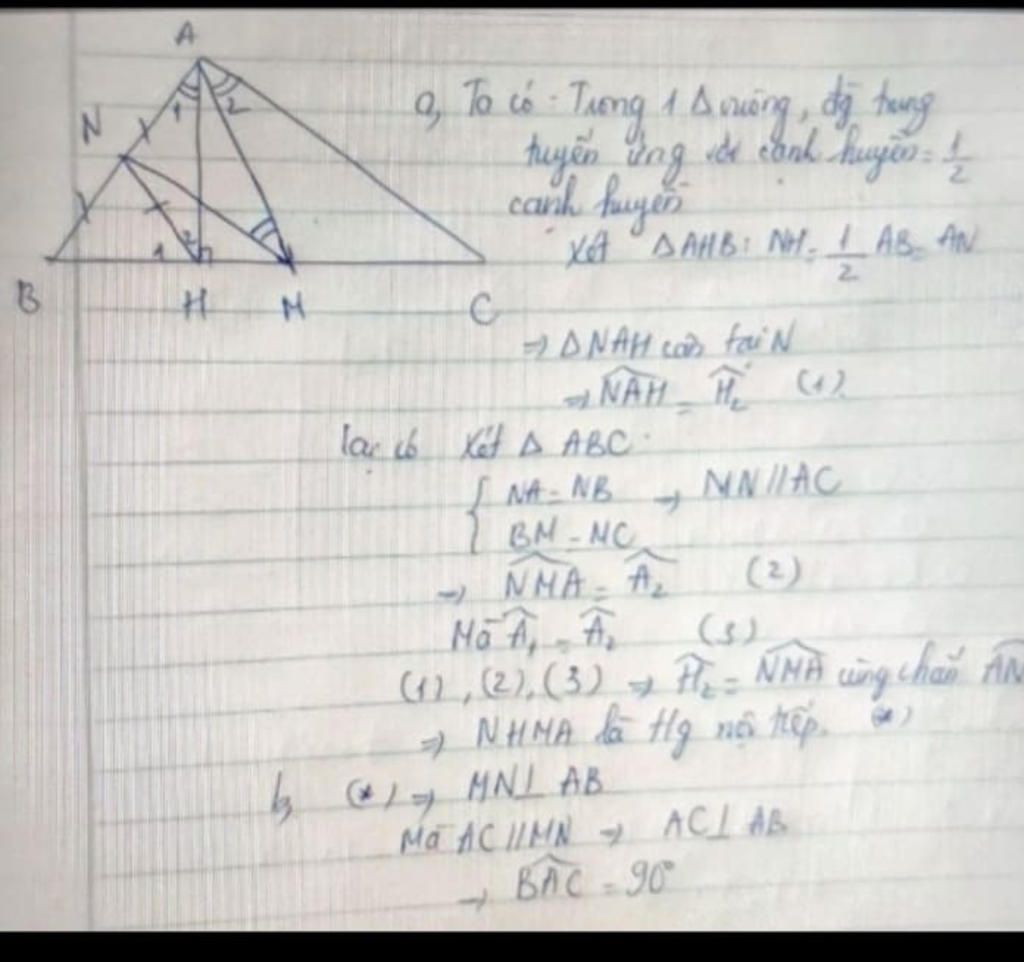 A
1
2
N
2
1
B
H
M
C
a, Ta có: Trong 1 Δ vuông, đg trung
tuyến ứng với cạnh huyền = 1/2
cạnh huyền
Xét ΔAHB: NH = 1/2 AB = AN
⇒ ΔNAH cân tại N
⇒ \widehat{NAH} = \widehat{H_2} (1)
lại có Xét Δ ABC:
{ NA = NB → MN // AC
BM = MC
→ \widehat{NMA} = \widehat{A_2} (2)
Mà \widehat{A_1} = \widehat{A_2} (3)
(1), (2), (3) ⇒ \widehat{H_2} = \widehat{NMA} cùng chắn AN
⇒ NHMA là tg nội tiếp. (*)
b, (*) ⇒ MN ⊥ AB
Mà AC // MN ⇒ AC ⊥ AB
→ \widehat{BAC} = 90°